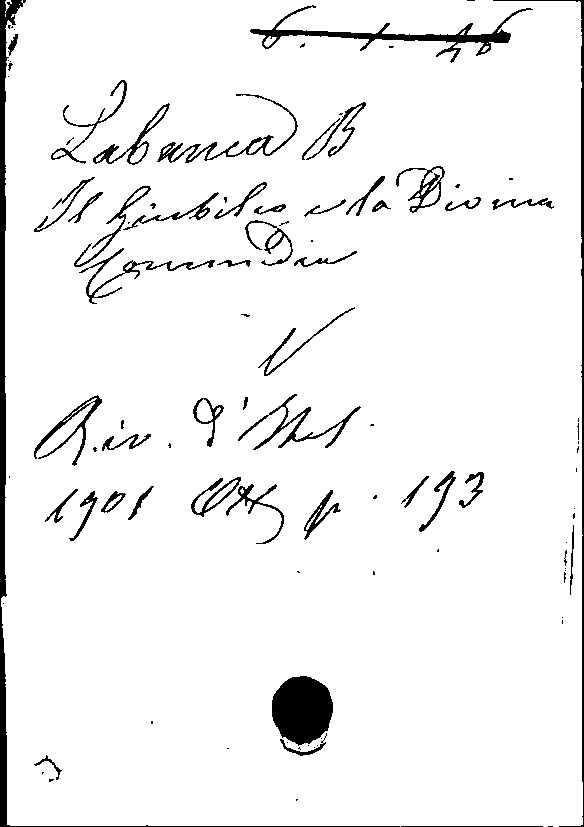 6. 1. 46
Labanca B
Il Giubileo e la Divina
Commedia
V
Riv. d'Ital.
1901 Ott p. 193